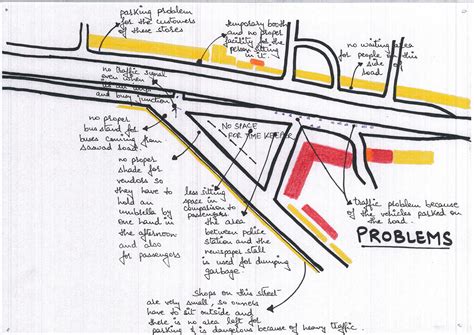 parking problem
for the customers
of these stores
temporary booths
and no proper
facility for the
person sitting
in it.
no waiting area
for people on this
side of
road
no traffic signal
even when
and busy
junction
no proper
bus stand for
buses coming from
road.
NO SPACE
FOR TIME KEEPER
no proper
shade for
vendors so
they have
to hold
an
umbrella by
one hand in
the afternoon
and also
for passengers
less sitting
space in
comparison to
passengers
the area
between police
station and the
newspaper stall
is used for dumping
garbage.
traffic problem because
of the vehicles parked on
the road.
PROBLEMS
shops on this street
are very small, so owners
have to sit outside and
there is no area left for
parking & is dangerous because of heavy traffic.